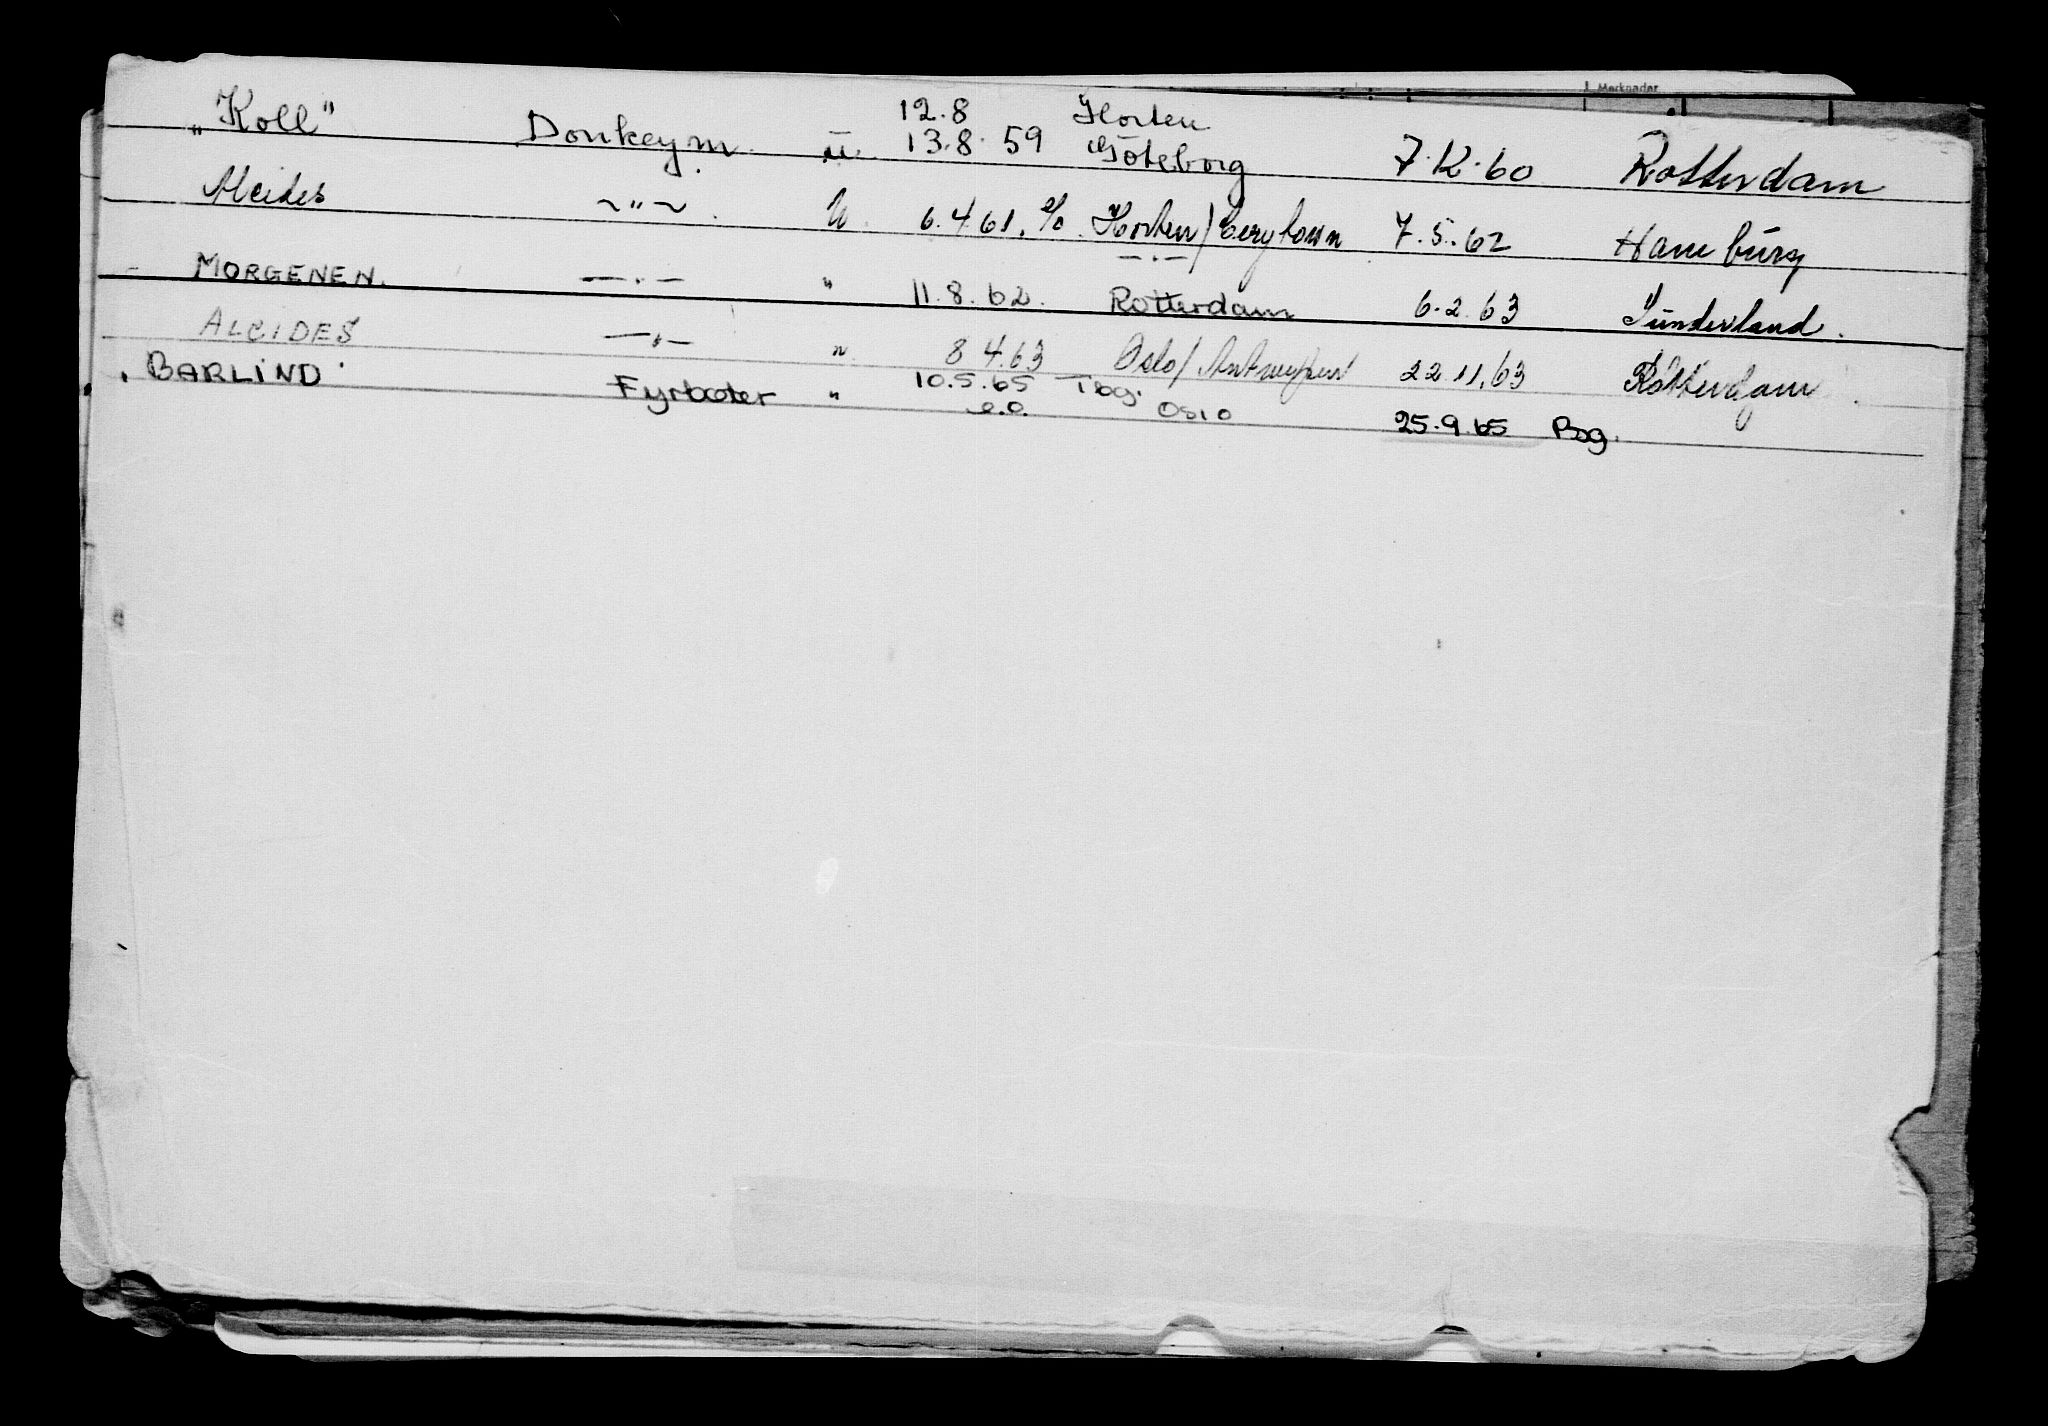 Merknader
"Koll" Donkeym. u. 12.8 Horten 13.8.59 Göteborg 7.12.60 Rotterdam
Alcides ~"~ . U. 6.4.61. e/o Horten/
7.5.62 Hamburg
MORGENEN. —.— " 11.8.62. —.— Rotterdam 6.2.63 Sunderland.
ALCIDES —"— " 8 4.63 Oslo/Antwerpen 22.11.63 Rotterdam
"BARLIND" Fyrbøter " 10.5.65 Tbg. e.o. Oslo 25.9.65 Bg.